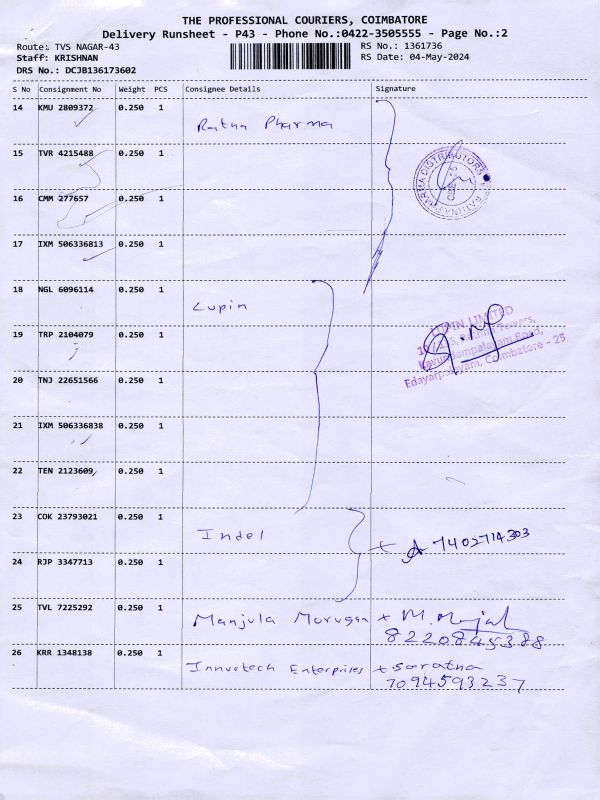 THE PROFESSIONAL COURIERS, COIMBATORE
Delivery Runsheet - P43 - Phone No.:0422-3505555 - Page No.:2
Route: TVS NAGAR-43 RS No.: 1361736
Staff: KRISHNAN RS Date: 04-May-2024
DRS No.: DCJB136173602
S No Consignment No Weight PCS Consignee Details Signature
14 KMU 2809372 0.250 1 Ratna Pharma
15 TVR 4215488 0.250 1
16 CMM 277657 0.250 1
17 IXM 506336813 0.250 1
18 NGL 6096114 0.250 1 Lupin
19 TRP 2104079 0.250 1
20 TNJ 22651566 0.250 1
21 IXM 506336838 0.250 1
22 TEN 2123609 0.250 1
23 COK 23793021 0.250 1 Indel 7402714303
24 RJP 3347713 0.250 1
25 TVL 7225292 0.250 1 Manjula Murugan
8220845388
26 KRR 1348138 0.250 1 Innvotech Enterprises
7094593237
RATNA PHARMA DISTRIBUTORS
LUPIN LIMITED
Towers,
Kavundampalayam Road,
Edayarpalayam, Coimbatore - 25